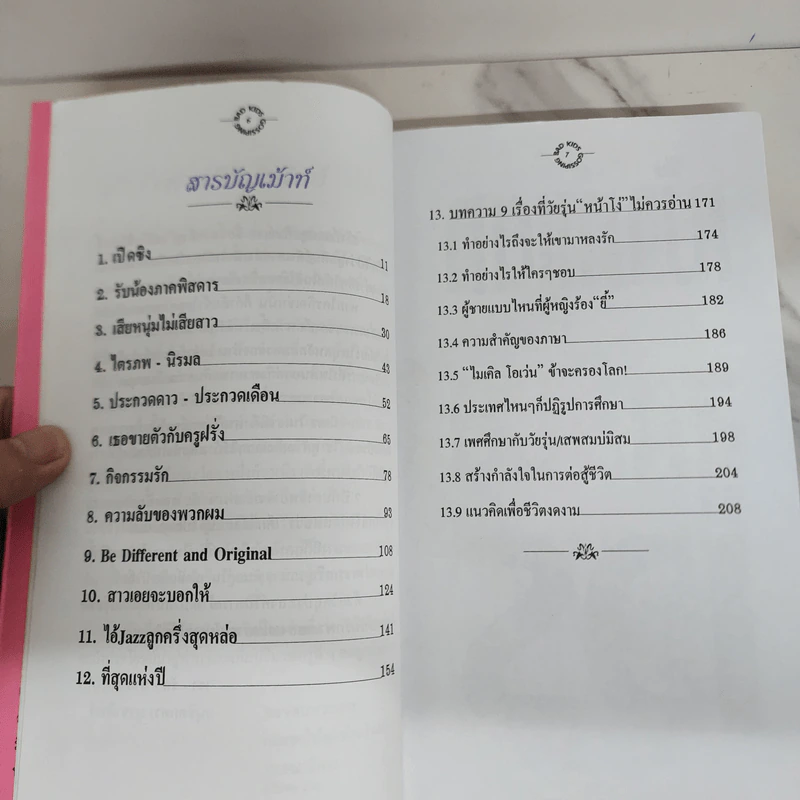 BAD KIDS GOSSIPING
6
สารบัญเม้าท์
1. เปิดซิง 11
2. รับน้องภาคพิสดาร 18
3. เสียหนุ่มไม่เสียสาว 30
4. ไตรภพ - นิรมล 43
5. ประกวดดาว - ประกวดเดือน 52
6. เธอขายตัวกับครูฝรั่ง 65
7. กิจกรรมรัก 78
8. ความลับของพวกผม 93
9. Be Different and Original 108
10. สาวเอยจะบอกให้ 124
11. ไอ้Jazzลูกครึ่งสุดหล่อ 141
12. ที่สุดแห่งปี 154
BAD KIDS GOSSIPING
7
13. บทความ 9 เรื่องที่วัยรุ่น“หน้าโง่”ไม่ควรอ่าน 171
13.1 ทำอย่างไรถึงจะให้เขามาหลงรัก 174
13.2 ทำอย่างไรให้ใครๆชอบ 178
13.3 ผู้ชายแบบไหนที่ผู้หญิงร้อง“ยี้” 182
13.4 ความสำคัญของภาษา 186
13.5 “ไมเคิล โอเว่น” ข้าจะครองโลก! 189
13.6 ประเทศไหนๆก็ปฏิรูปการศึกษา 194
13.7 เพศศึกษากับวัยรุ่น/เสพสมบ่มิสม 198
13.8 สร้างกำลังใจในการต่อสู้ชีวิต 204
13.9 แนวคิดเพื่อชีวิตงดงาม 208